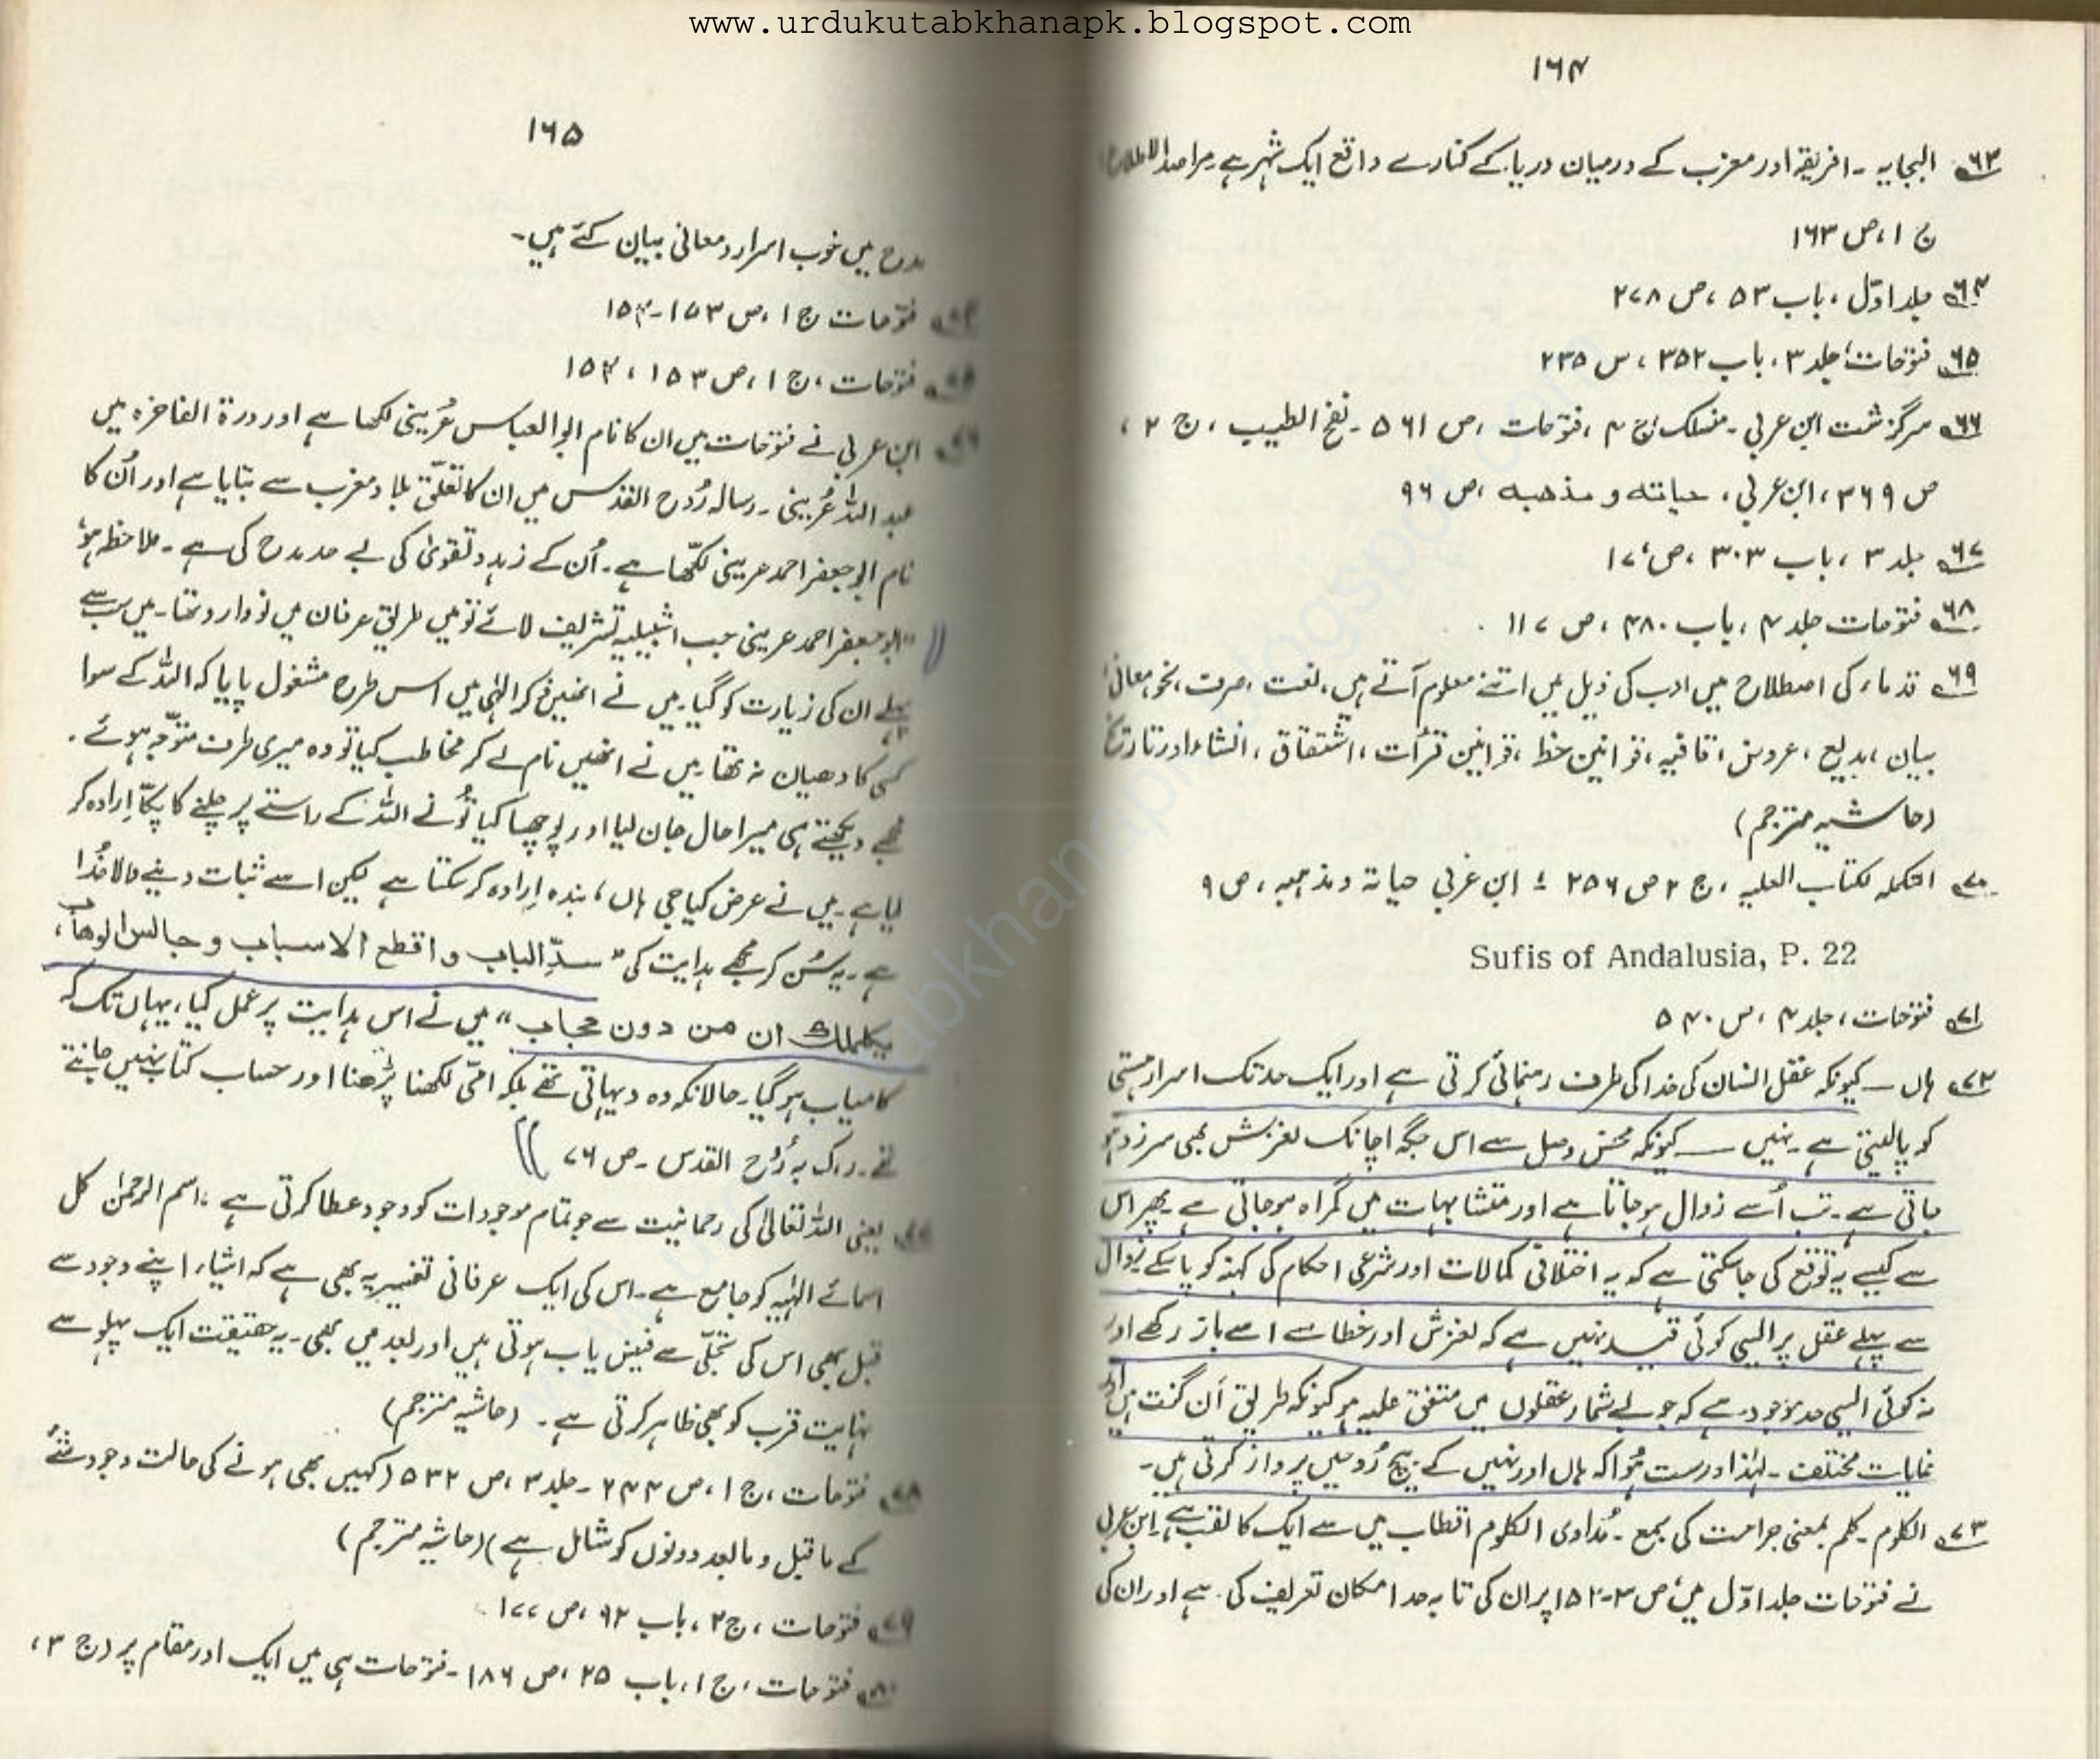 www.urdukutabkhanapk.blogspot.com
۱۶۴
۶۳ البجایہ ۔ افریقہ اور مغرب کے درمیان دریا کے کنارے واقع ایک شہر ہے ۔ مراصد الاطلاع
ج ۱، ص ۱۶۳
۶۴ جلد اوّل ، باب ۵۳ ، ص ۲۷۸
۶۵ فتوحات، جلد ۳، باب ۳۵۲ ، س ۲۳۵
۶۶ سرگزشت ابن عربی ۔ منسلک ج ۴ ، فتوحات ، ص ۵۶۱ ۔ نفخ الطیب ، ج ۲ ،
ص ۳۶۹ ، ابن عربی ، حیاتہ و مذھبہ ، ص ۹۶
۶۷ جلد ۳ ، باب ۳۰۳ ، ص ۱۷
۶۸ فتوحات جلد ۴ ، باب ۴۸۰ ، ص ۱۱۷ .
۶۹ قدماء کی اصطلاح میں ادب کی ذیل میں اتنے معلوم آتے ہیں ، لغت ، صرف ، نحو ، معانی
بیان ، بدیع ، عروض ، قافیہ ، قوانین خط ، قوانین قرأت ، اشتقاق ، انشاء اور تاریخ
(حاشیہ مترجم)
۷۰ التکملہ لکتاب الصلیہ ، ج ۲ ص ۲۵۶ ؛ ابن عربی حیاتہ و مذہبہ ، ص ۹
Sufis of Andalusia, P. 22
۷۱ فتوحات ، جلد ۴ ، س ۵۴۰
۷۲ ہاں — کیونکہ عقل انسان کی خدا کی طرف رہنمائی کرتی ہے اور ایک حد تک اسرار ہستی
کو پالیتی ہے ۔ نہیں — کیونکہ محض وصل سے اس جگہ اچانک لغزش بھی سرزد ہو
جاتی ہے ۔ تب اُسے زوال ہو جاتا ہے اور متشابہات میں گمراہ ہو جاتی ہے ۔ پھر اس
سے کیسے یہ توقع کی جا سکتی ہے کہ یہ اختلاقی کمالات اور شرعی احکام کی کہنہ کو پا سکے زوال
سے پہلے عقل پر ایسی کوئی قید نہیں ہے کہ لغزش اور خطا سے اسے باز رکھے اور
نہ کوئی ایسی حد موجود ہے کہ جو بے شمار عقلوں میں متفق علیہ ہو کیونکہ طریق اَن گنت ہیں اور
غایات مختلف ۔ لہٰذا درست ہُوا کہ ہاں اور نہیں کے بیچ رُوحیں پرواز کرتی ہیں ۔
۷۳ الکلوم ۔ کلم بمعنی جراحت کی جمع ۔ مُداوی الکلوم اقطاب میں سے ایک کا لقب ہے ۔ ابن عربی
نے فتوحات جلد اوّل میں ، ص ۳-۱۵۲ پر ان کی تا بہ حد امکان تعریف کی ہے اور ان کی
۱۶۵
مدح میں خوب اسرار و معانی بیان کئے ہیں ۔
فتوحات ج ۱ ، ص ۱۵۳-۱۵۴
فتوحات ، ج ۱ ، ص ۱۵۳ ، ۱۵۴
ابن عربی نے فتوحات میں ان کا نام ابوالعباس عُرینی لکھا ہے اور درۃ الفاخرہ میں
عبداللہ عُرینی ۔ رسالہ رُوح القدس میں ان کا تعلّق بلاد مغرب سے بتایا ہے اور اُن کا
نام ابو جعفر احمد عرینی لکھّا ہے ۔ اُن کے زہد و تقویٰ کی بے حد مدح کی ہے ۔ ملاحظہ ہو
"ابوجعفر احمد عرینی جب اشبیلیہ تشریف لائے تو میں طریق عرفان میں نووارد تھا ۔ میں سب سے
پہلے ان کی زیارت کو گیا ۔ میں نے انھیں ذکر الٰہی میں اس طرح مشغول پایا کہ اللہ کے سوا
کسی کا دھیان نہ تھا ۔ میں نے انھیں نام لے کر مخاطب کیا تو وہ میری طرف متوّجہ ہوئے ۔
مجھے دیکھتے ہی میرا حال جان لیا اور پوچھا کیا تُو نے اللہ کے راستے پر چلنے کا پکّا اِرادہ کر
لیا ہے ۔ میں نے عرض کیا جی ہاں ، بندہ اِرادہ کر سکتا ہے لیکن اسے ثبات دینے والا خُدا
ہے ۔ یہ سُن کر مجھے ہدایت کی "سدِّ الباب و اقطع الاسباب و جالس الوھاب ،
یکلملك ان من دون حجاب" میں نے اس ہدایت پر عمل کیا ، یہاں تک کہ
کامیاب ہو گیا ۔ حالانکہ وہ دیہاتی تھے بلکہ امّی لکھنا پڑھنا اور حساب کتاب نہیں جانتے
تھے ۔ رک بہ رُوح القدس ۔ ص ۷۶
یعنی اللہ تعالیٰ کی رحمانیت سے جو تمام موجودات کو وجود عطا کرتی ہے ، اسم الرحمٰن کل
اسمائے الٰہیہ کو جامع ہے ۔ اس کی ایک عرفانی تفسیر یہ بھی ہے کہ اشیاء اپنے وجود سے
قبل بھی اس کی تجلّی سے فیض یاب ہوتی ہیں اور بعد میں بھی ۔ یہ حقیقت ایک پہلو سے
نہایت قرب کو بھی ظاہر کرتی ہے ۔ (حاشیہ مترجم)
۷۸ فتوحات ، ج ۱ ، ص ۲۴۴ ۔ جلد ۳ ، ص ۵۳۲ (کہیں بھی ہونے کی حالت وجود شئے
کے ماقبل و مابعد دونوں کو شامل ہے) (حاشیہ مترجم)
۷۹ فتوحات ، ج ۲ ، باب ۹۲ ، ص ۱۷۷
۸۰ فتوحات ، ج ۱ ، باب ۲۵ ، ص ۱۸۶ ۔ فتوحات ہی میں ایک اور مقام پر (ج ۳ ،